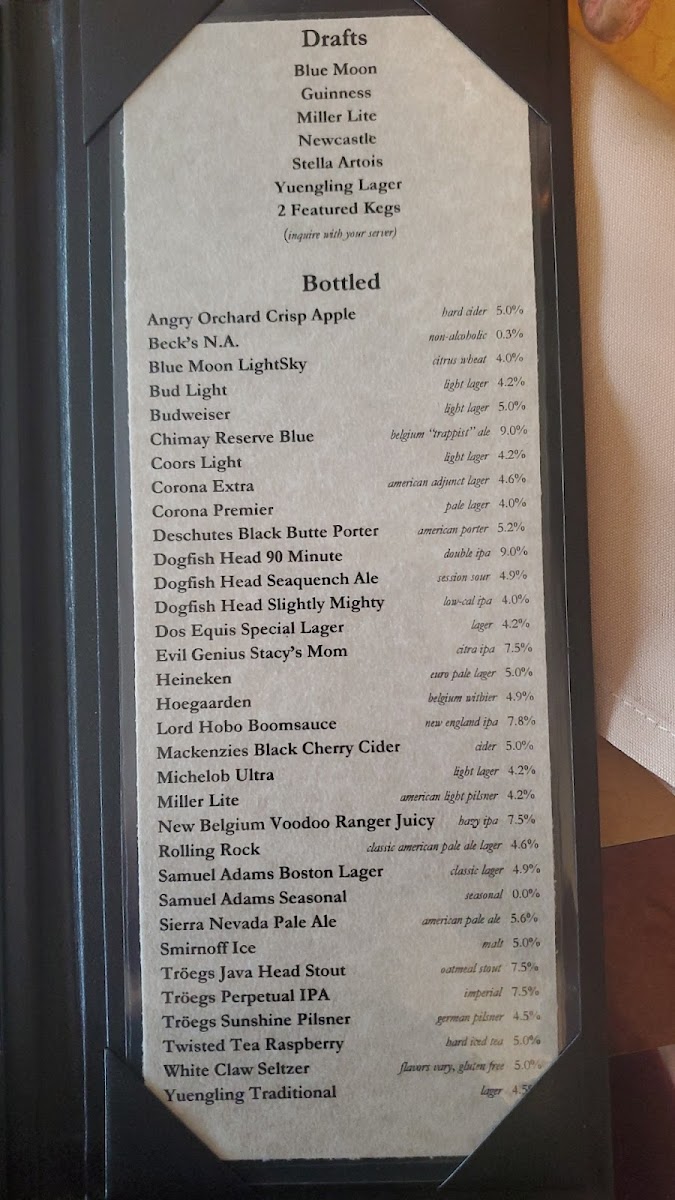 Drafts
Blue Moon
Guinness
Miller Lite
Newcastle
Stella Artois
Yuengling Lager
2 Featured Kegs
(inquire with your server)
Bottled
Angry Orchard Crisp Apple hard cider 5.0%
Beck's N.A. non-alcoholic 0.3%
Blue Moon LightSky citrus wheat 4.0%
Bud Light light lager 4.2%
Budweiser light lager 5.0%
Chimay Reserve Blue belgium "trappist" ale 9.0%
Coors Light light lager 4.2%
Corona Extra american adjunct lager 4.6%
Corona Premier pale lager 4.0%
Deschutes Black Butte Porter american porter 5.2%
Dogfish Head 90 Minute double ipa 9.0%
Dogfish Head Seaquench Ale session sour 4.9%
Dogfish Head Slightly Mighty low-cal ipa 4.0%
Dos Equis Special Lager lager 4.2%
Evil Genius Stacy's Mom citra ipa 7.5%
Heineken euro pale lager 5.0%
Hoegaarden belgium witbier 4.9%
Lord Hobo Boomsauce new england ipa 7.8%
Mackenzies Black Cherry Cider cider 5.0%
Michelob Ultra light lager 4.2%
Miller Lite american light pilsner 4.2%
New Belgium Voodoo Ranger Juicy hazy ipa 7.5%
Rolling Rock classic american pale ale lager 4.6%
Samuel Adams Boston Lager classic lager 4.9%
Samuel Adams Seasonal seasonal 0.0%
Sierra Nevada Pale Ale american pale ale 5.6%
Smirnoff Ice malt 5.0%
Tröegs Java Head Stout oatmeal stout 7.5%
Tröegs Perpetual IPA imperial 7.5%
Tröegs Sunshine Pilsner german pilsner 4.5%
Twisted Tea Raspberry hard iced tea 5.0%
White Claw Seltzer flavors vary, gluten free 5.0%
Yuengling Traditional lager 4.5%